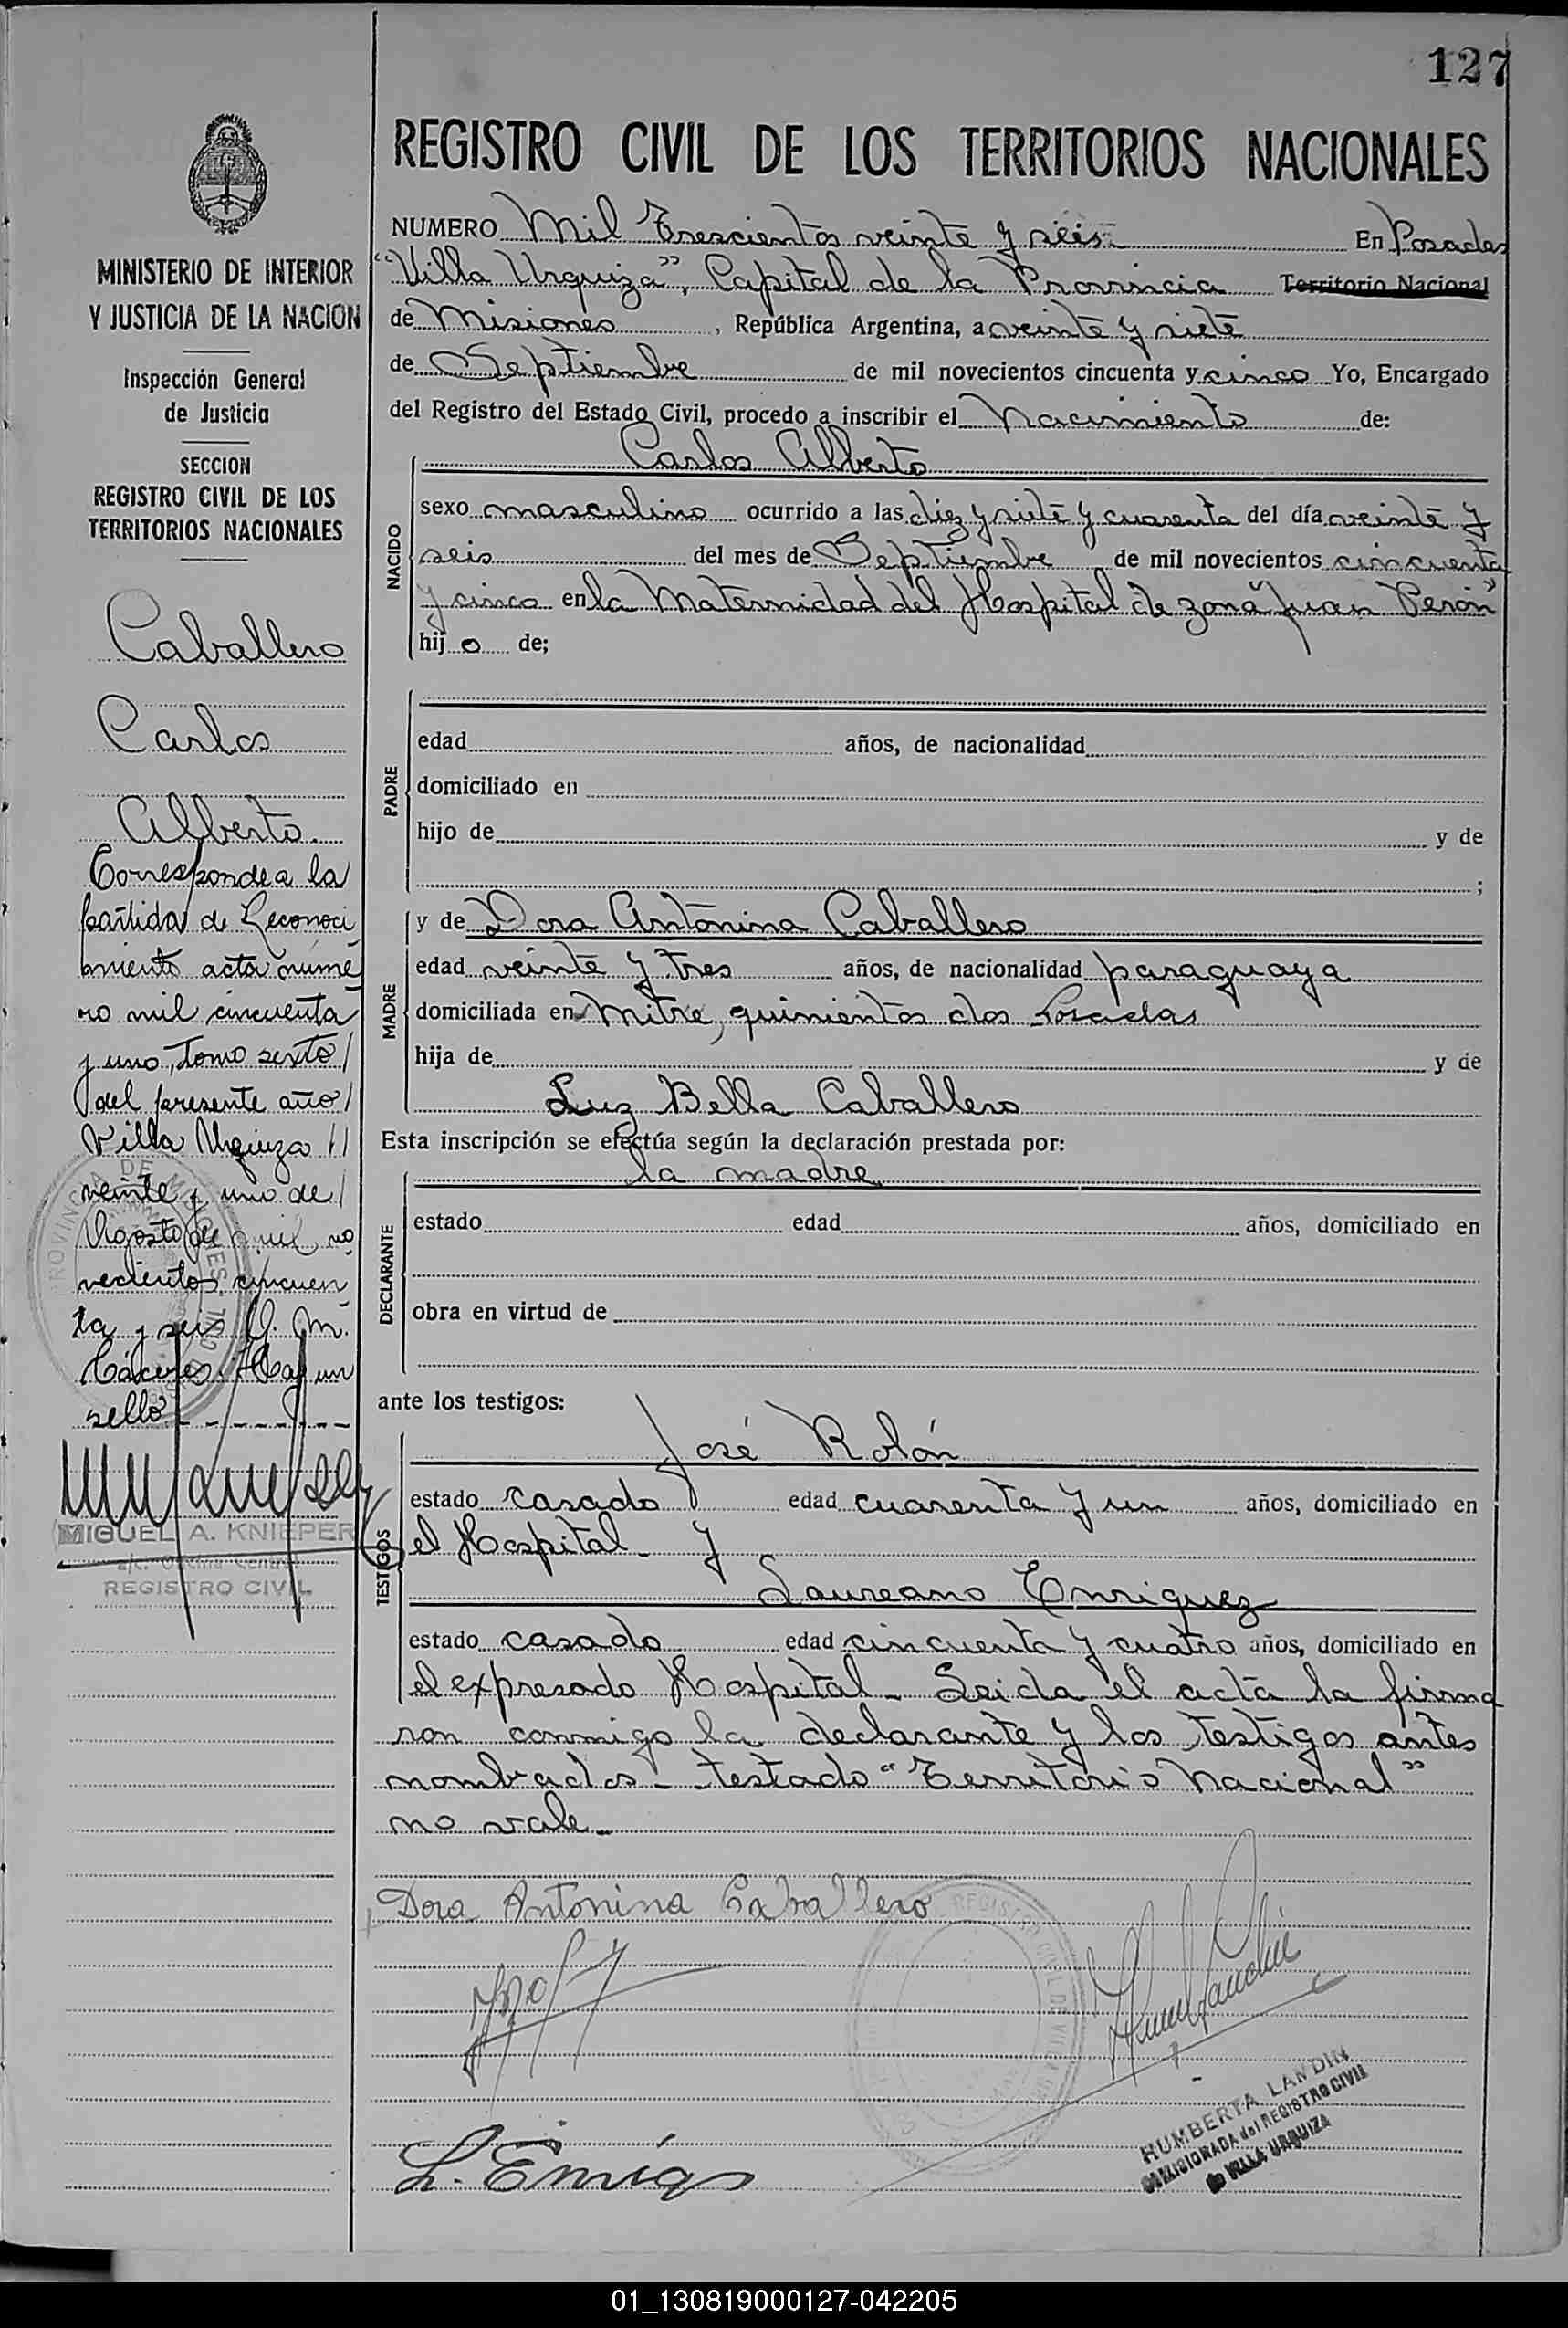 127
REGISTRO CIVIL DE LOS TERRITORIOS NACIONALES
NUMERO Mil Trescientos veinte y seis En Posadas
"Villa Urquiza", Capital de la Provincia Territorio Nacional
de Misiones, República Argentina, a veinte y siete
de Septiembre de mil novecientos cincuenta y cinco Yo, Encargado
del Registro del Estado Civil, procedo a inscribir el Nacimiento de:
NACIDO
Carlos Alberto
sexo masculino ocurrido a las diez y siete y cuarenta del día veinte y
seis del mes de Septiembre de mil novecientos cincuenta
y cinco en la Maternidad del Hospital de zona "Juan Perón"
hijo de;
PADRE
edad años, de nacionalidad
domiciliado en
hijo de y de
;
MADRE
y de Dora Antonina Caballero
edad veinte y tres años, de nacionalidad paraguaya
domiciliada en Mitre, quinientos dos Posadas
hija de y de
Luz Bella Caballero
Esta inscripción se efectúa según la declaración prestada por:
DECLARANTE
la madre
estado edad años, domiciliado en
obra en virtud de
ante los testigos:
TESTIGOS
José Rolón
estado casado edad cuarenta y un años, domiciliado en
el Hospital - y
Laureano Enriquez
estado casado edad cincuenta y cuatro años, domiciliado en
el expresado Hospital - Leida el acta la firma
ron conmigo la declarante y los testigos antes
nombrados - testado "Territorio Nacional"
no vale -
Dora Antonina Caballero
L.
HUMBERTA LANDIN
COMISIONADA del REGISTRO CIVIL
de VILLA URQUIZA
MINISTERIO DE INTERIOR
Y JUSTICIA DE LA NACION
Inspección General
de Justicia
SECCION
REGISTRO CIVIL DE LOS
TERRITORIOS NACIONALES
Caballero
Carlos
Alberto.
Corresponde a la
partida de Reconoci
miento acta núme
ro mil cincuenta
y uno, Tomo sexto
del presente año
Villa Urquiza
veinte y uno de
Agosto de mil no
vecientos cincuen
ta y seis G. M.
Cáceres. Hay un
sello
MIGUEL A. KNIEPER
a/c. Oficina Central
REGISTRO CIVIL
01_130819000127-042205